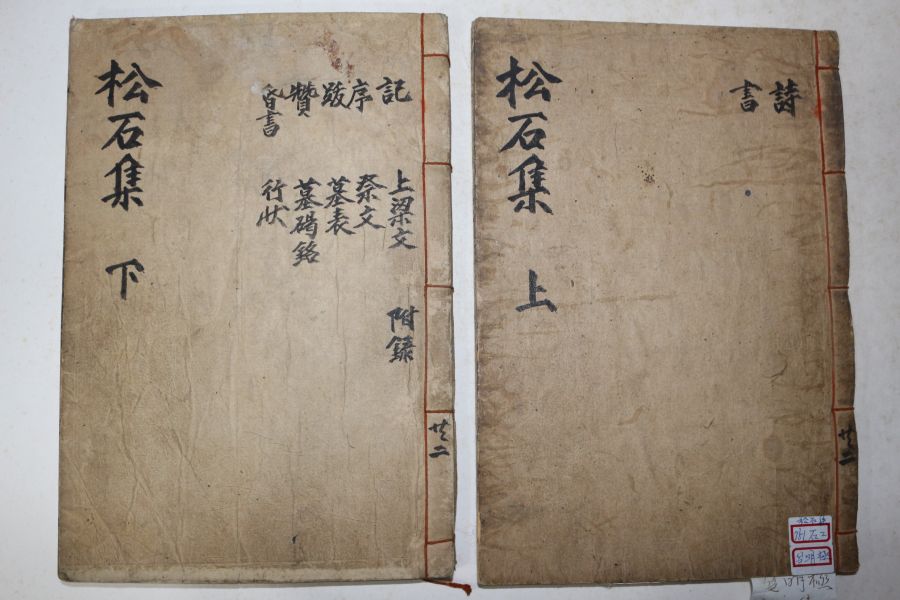 詩
書
松石集 上
共二
記 上梁文 附錄
序 祭文
跋 墓表
贊 墓碣銘
昏書 行狀
松石集 下
共二